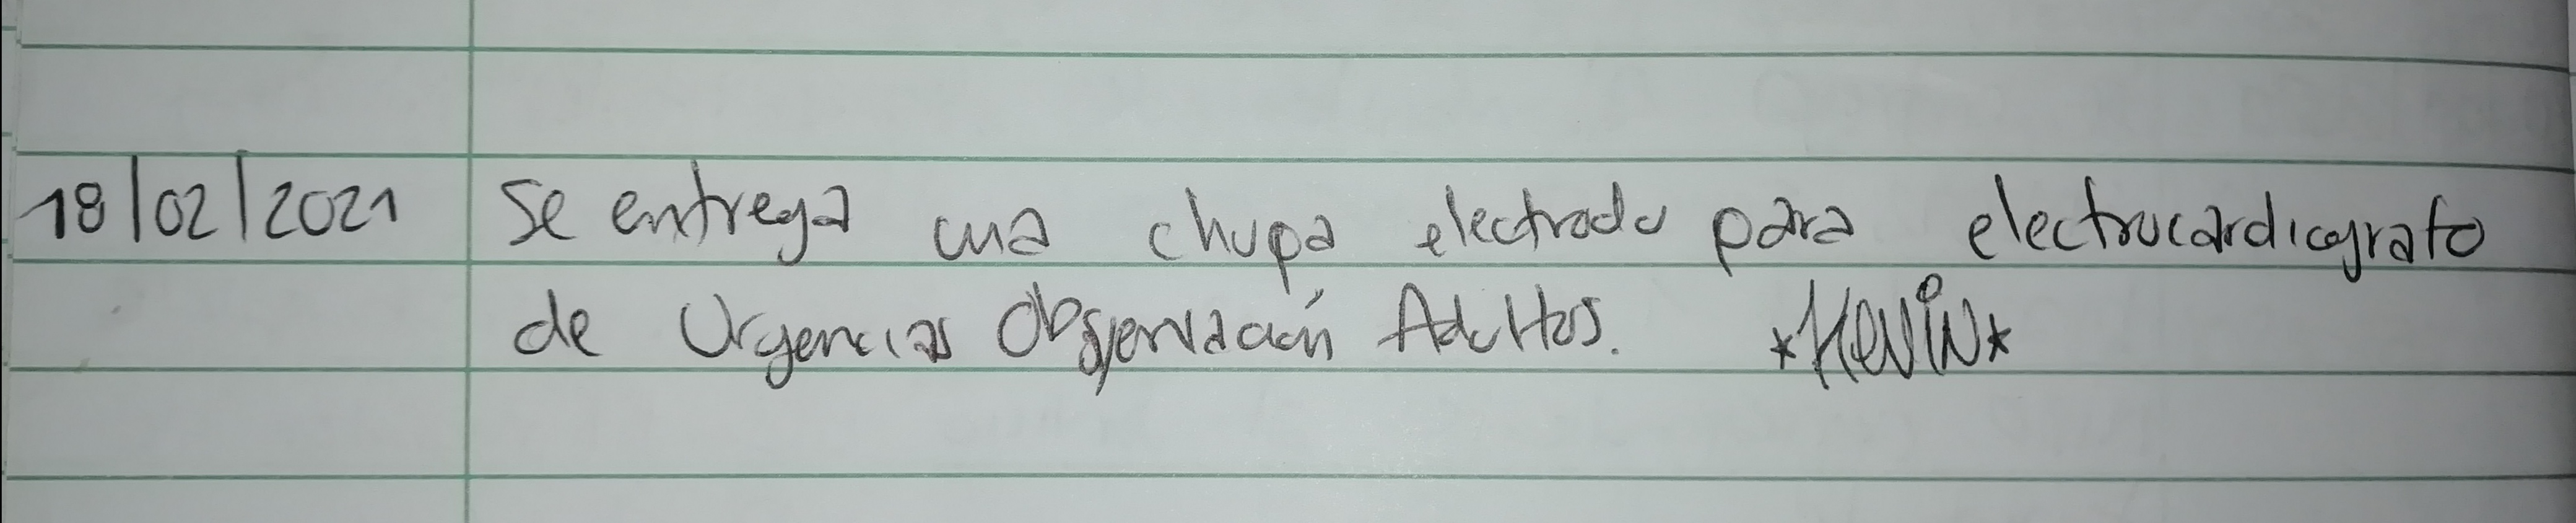 18/02/2021 Se entrega una chupa electrodo para electrocardiografo
de Urgencias Observación Adultos. *KEVIN*